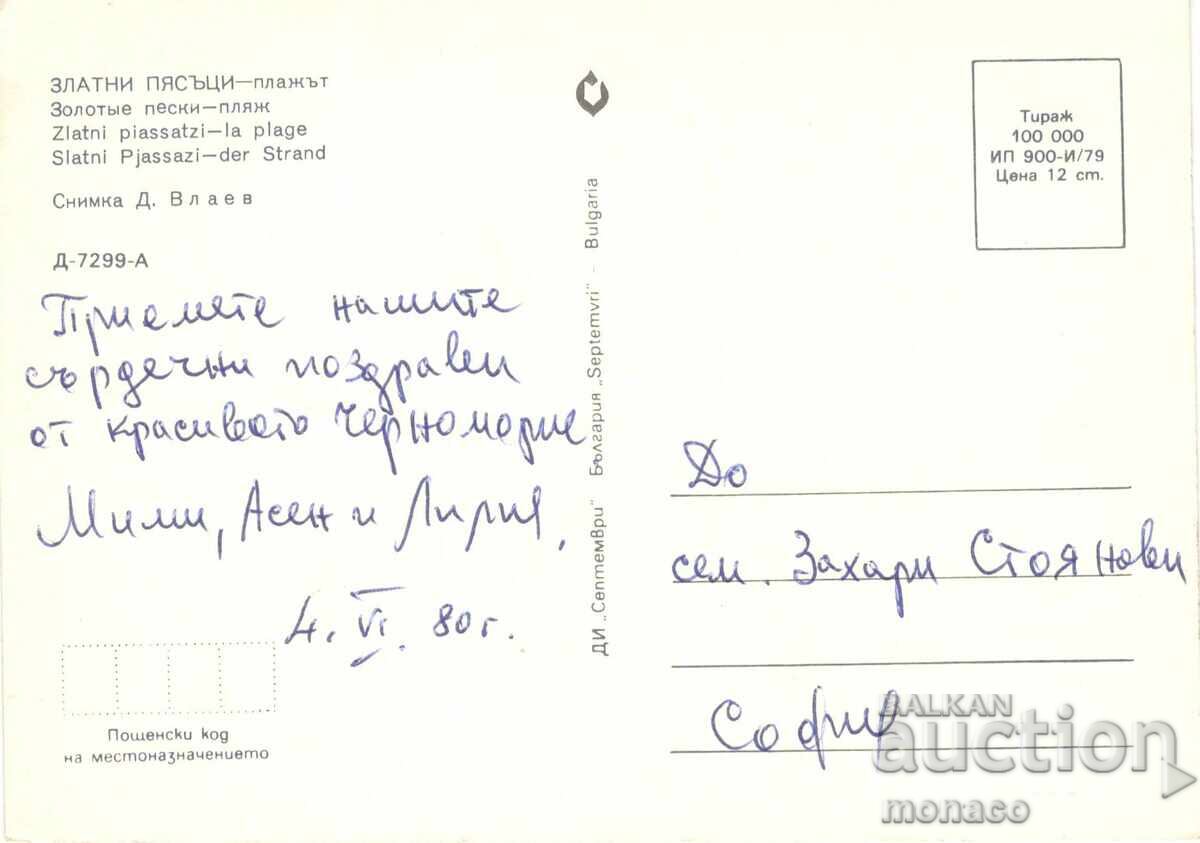 ЗЛАТНИ ПЯСЪЦИ—плажът
Золотые пески—пляж
Zlatni piassatzi—la plage
Slatni Pjassazi—der Strand
Снимка Д. Влаев
Д-7299-А
Приемете нашите
сърдечни поздрави
от красивото Черноморие
Мими, Асен и Лирия,
4. VI. 80 г.
Пощенски код
на местоназначението
ДИ „Септември" България „Septemvri" - Bulgaria
Тираж
100 000
ИП 900-И/79
Цена 12 ст.
До
сем. Захари Стоянови
София
BALKAN
auction
monaco